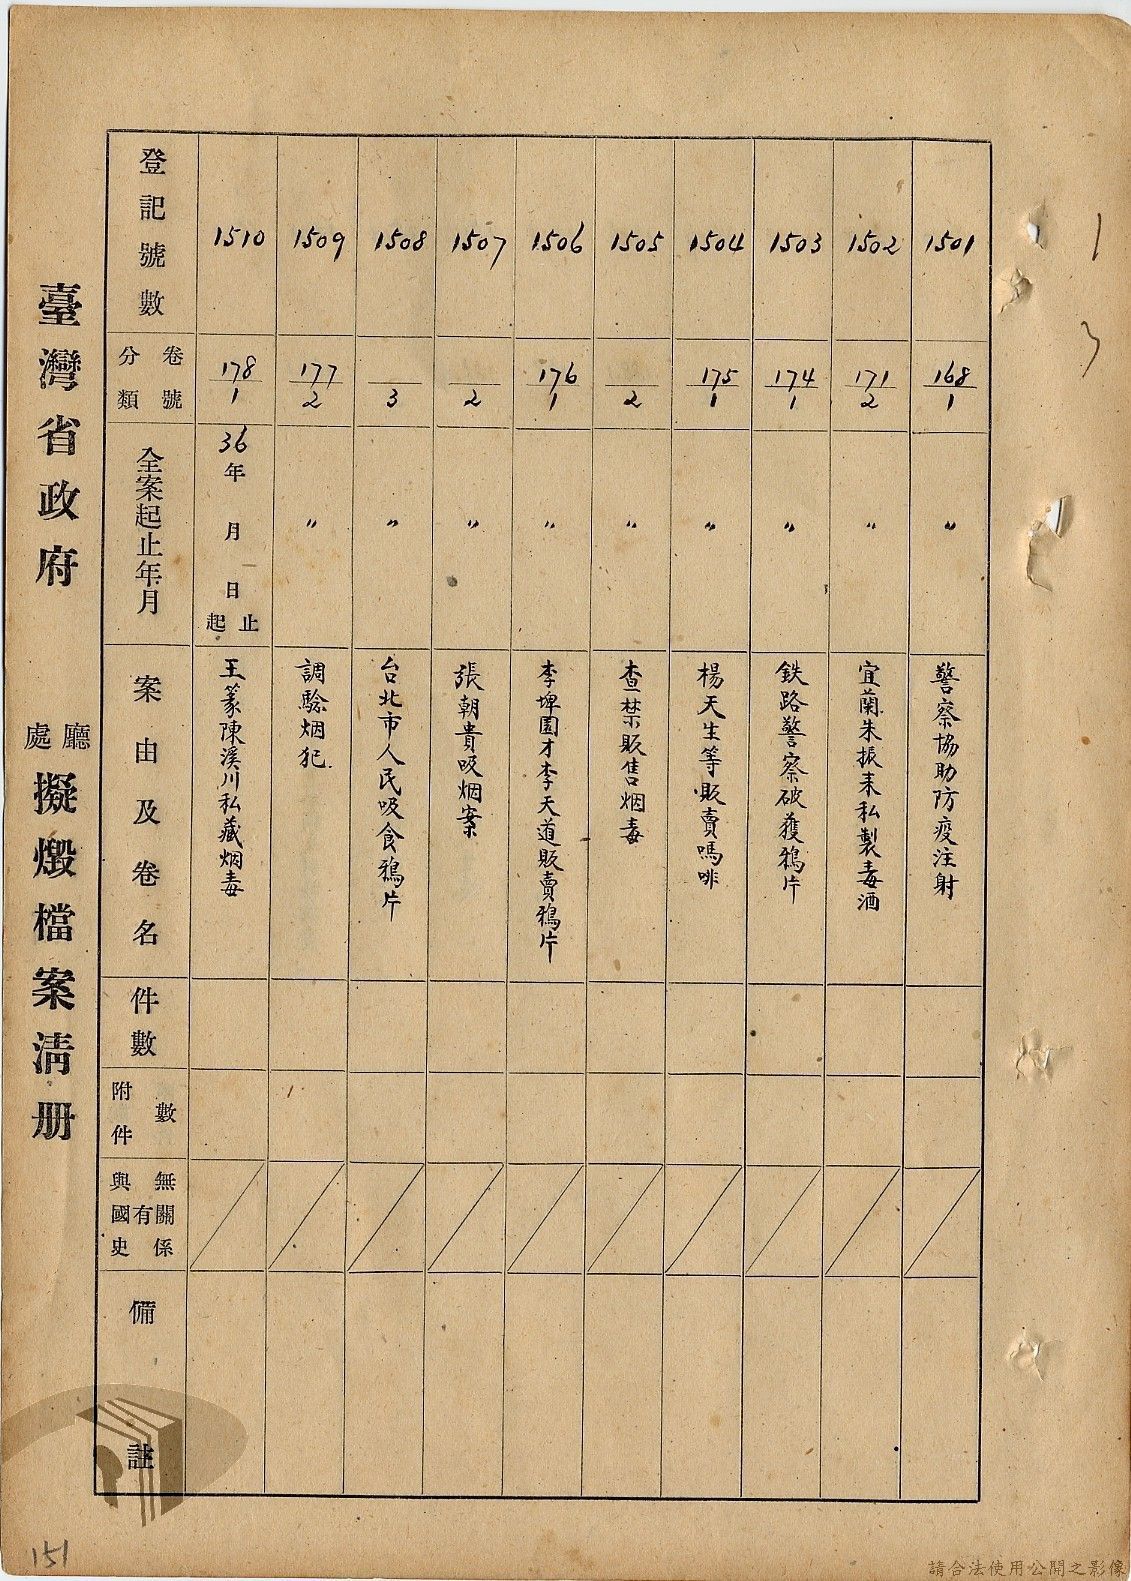 臺灣省政府 廳處 擬燬檔案清册
登記號數
卷號
分類
全案起止年月
案由及卷名
件數
附件數
與國史有無關係
備註
1510
178/1
36年 月 日起止
王篆陳溪川私藏烟毒
1509
177/2
〃
調驗烟犯
1508
3
〃
台北市人民吸食鴉片
1507
2
〃
張朝貴吸烟案
1506
176/1
〃
李埤園才李天道販賣鴉片
1505
2
〃
查禁販售烟毒
1504
175/1
〃
楊天生等販賣嗎啡
1503
174/1
〃
鉄路警察破獲鴉片
1502
171/2
〃
宜蘭朱振来私製毒酒
1501
168/1
〃
警察協助防疫注射
151
請合法使用公開之影像